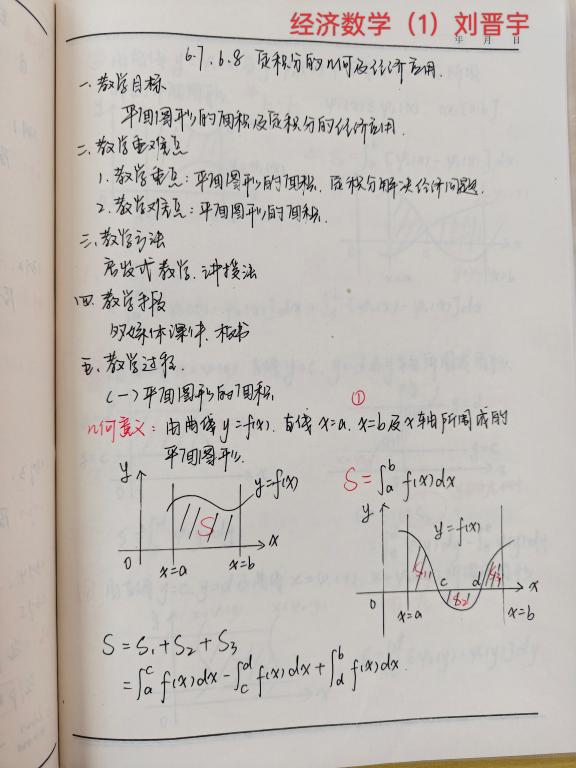 经济数学（1）刘晋宇
年 月 日
6.7、6.8 定积分的几何及经济应用.
一、教学目标
平面图形的面积及定积分的经济应用.
二、教学重难点
1. 教学重点：平面图形的面积、定积分解决经济问题.
2. 教学难点：平面图形的面积.
三、教学方法
启发式教学、讲授法
四、教学手段
多媒体课件、板书
五、教学过程.
（一）平面图形的面积
①
几何意义：由曲线 y=f(x)、直线 x=a、x=b 及 x 轴所围成的
平面图形.
S=∫_a^b f(x)dx
y
y=f(x)
S
x
x=a
x=b
0
y
y=f(x)
S1
c
S2
d
S3
x
0
x=a
x=b
S = S₁ + S₂ + S₃
=∫_a^c f(x)dx - ∫_c^d f(x)dx + ∫_d^b f(x)dx.